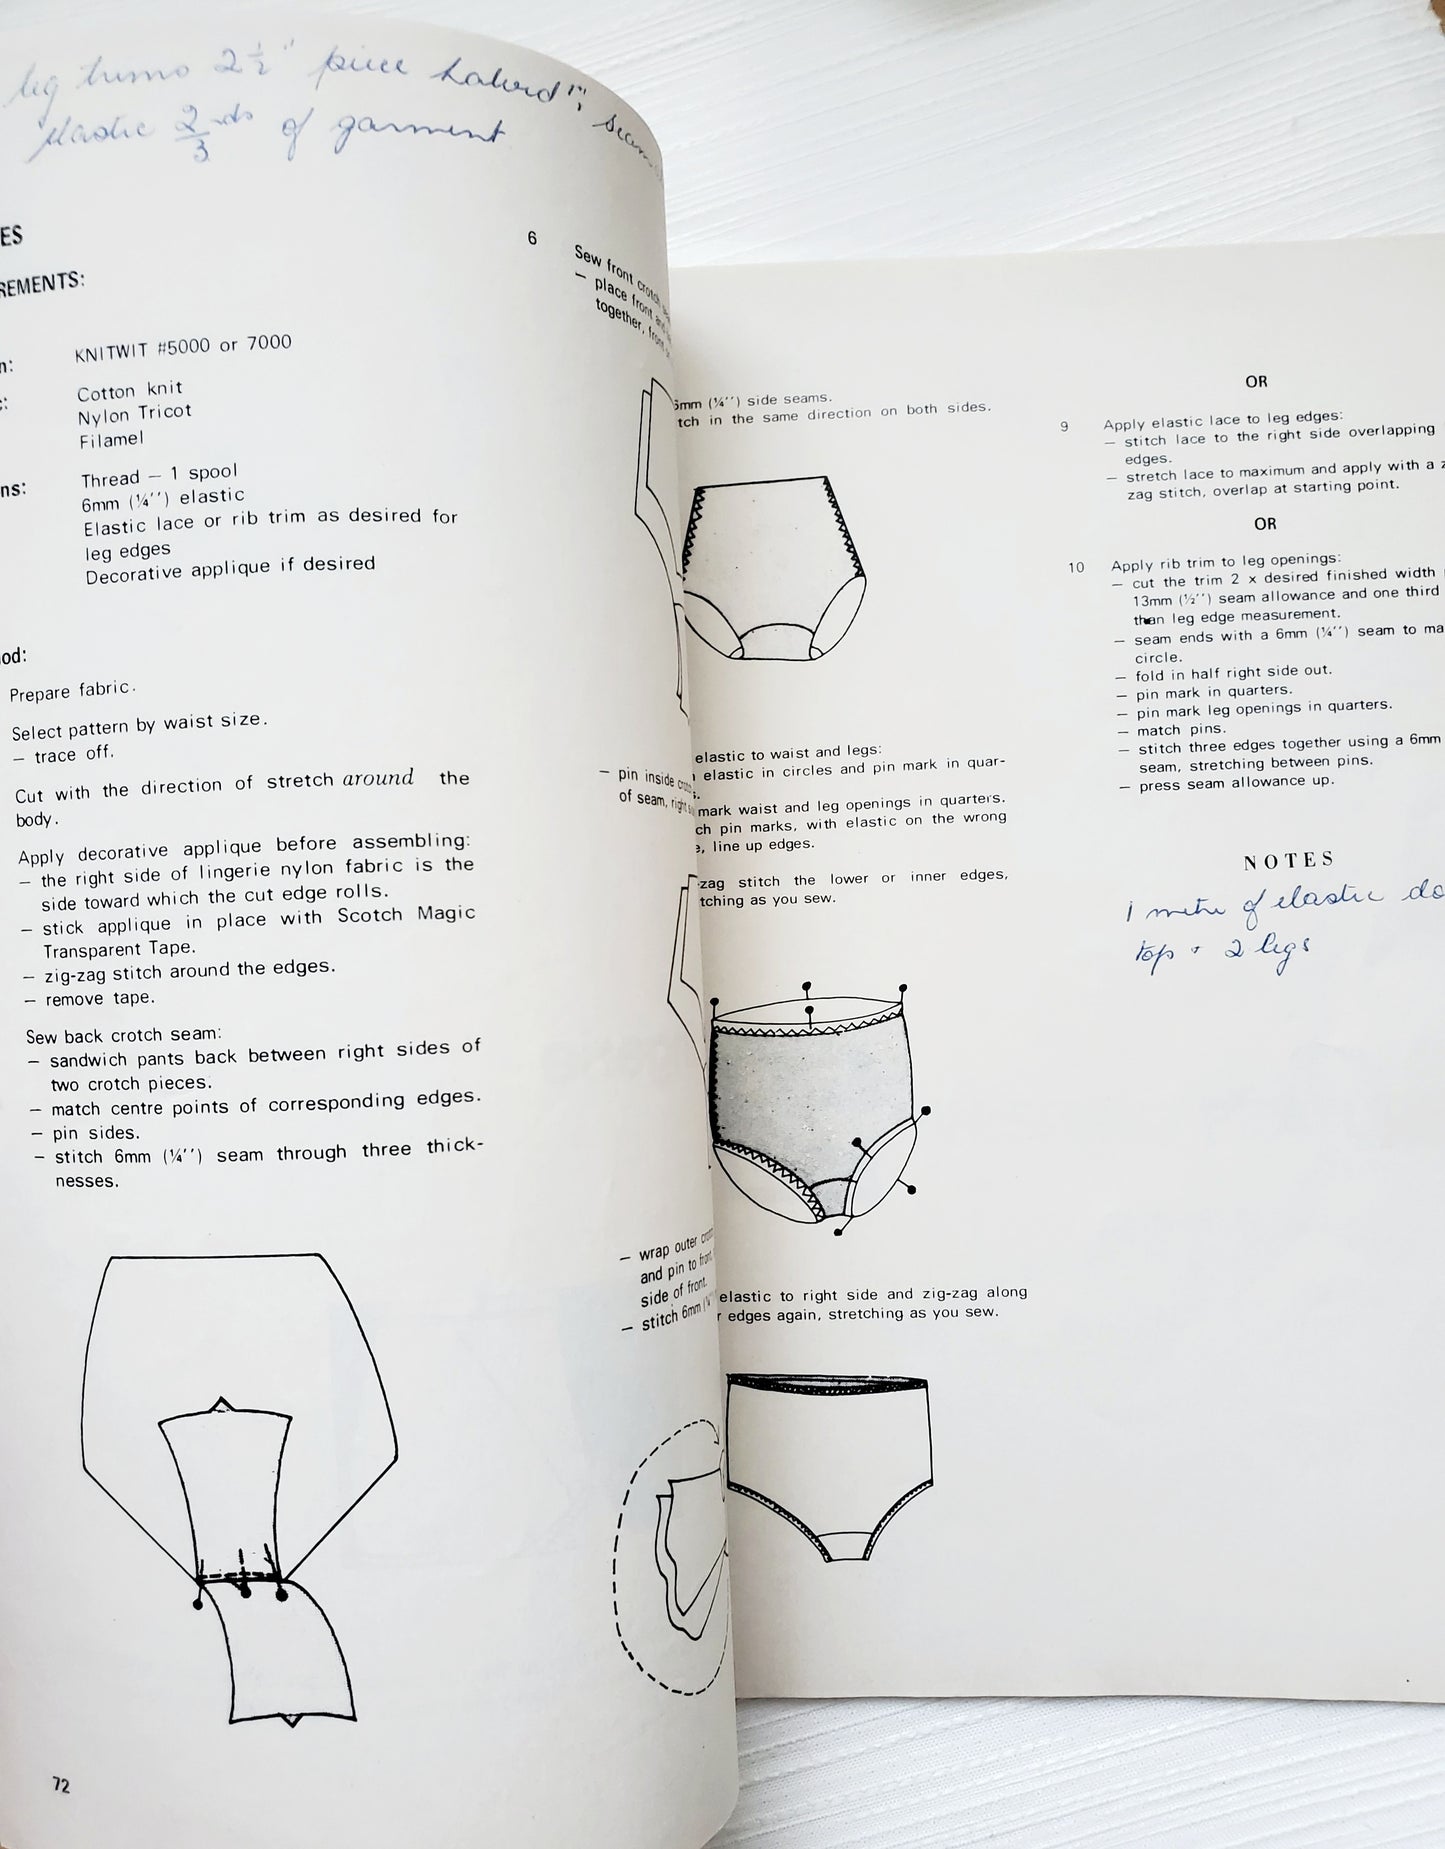 leg trims 2½" piece halved
elastic 2/3 rds of garment
ES
REMENTS:
KNITWIT #5000 or 7000
Cotton knit
Nylon Tricot
Filamel
ns:
Thread — 1 spool
6mm (¼'') elastic
Elastic lace or rib trim as desired for
leg edges
Decorative applique if desired
od:
Prepare fabric.
Select pattern by waist size.
— trace off.
Cut with the direction of stretch around the
body.
Apply decorative applique before assembling:
— the right side of lingerie nylon fabric is the
side toward which the cut edge rolls.
— stick applique in place with Scotch Magic
Transparent Tape.
— zig-zag stitch around the edges.
— remove tape.
Sew back crotch seam:
— sandwich pants back between right sides of
two crotch pieces.
— match centre points of corresponding edges.
— pin sides.
— stitch 6mm (¼'') seam through three thick-
nesses.
72
6 Sew front crotch
— place front and
together, front
— pin inside
of seam, right
— wrap outer
and pin to front
side of front.
— stitch 6mm
6mm (¼'') side seams.
tch in the same direction on both sides.
elastic to waist and legs:
elastic in circles and pin mark in quar-
mark waist and leg openings in quarters.
ch pin marks, with elastic on the wrong
e, line up edges.
zag stitch the lower or inner edges,
tching as you sew.
elastic to right side and zig-zag along
r edges again, stretching as you sew.
OR
9 Apply elastic lace to leg edges:
— stitch lace to the right side overlapping
edges.
— stretch lace to maximum and apply with a z
zag stitch, overlap at starting point.
OR
10 Apply rib trim to leg openings:
— cut the trim 2 x desired finished width
13mm (½'') seam allowance and one third
than leg edge measurement.
— seam ends with a 6mm (¼'') seam to ma
circle.
— fold in half right side out.
— pin mark in quarters.
— pin mark leg openings in quarters.
— match pins.
— stitch three edges together using a 6mm
seam, stretching between pins.
— press seam allowance up.
NOTES
1 metre of elastic do
top + 2 legs